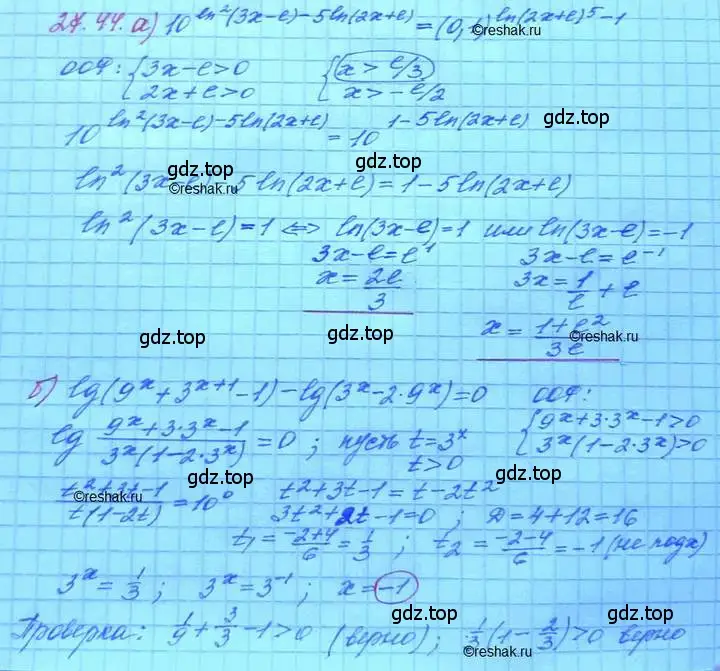 27.44.а) 10^(ln²(3x-e)-5ln(2x+e)) = (0,1)^(ln(2x+e)⁵-1)
©reshak.ru
ООФ: {3x-e>0 {x>e/3
2x+e>0 x>-e/2
10^(ln²(3x-e)-5ln(2x+e)) = 10^(1-5ln(2x+e))
gdz.top
gdz.top
ln²(3x-e)-5ln(2x+e)=1-5ln(2x+e)
©reshak.ru
ln²(3x-e)=1 ⇔ ln(3x-e)=1 или ln(3x-e)=-1
3x-e=e¹ 3x-e=e⁻¹
x=2e/3 3x=1/e+e
gdz.top gdz.top
x=(1+e²)/3e
©reshak.ru
б) lg(9ˣ+3ˣ⁺¹-1)-lg(3ˣ-2·9ˣ)=0 ООФ:
gdz.top
lg (9ˣ+3·3ˣ-1)/(3ˣ(1-2·3ˣ))=0 ; пусть t=3ˣ {9ˣ+3·3ˣ-1>0
t>0 3ˣ(1-2·3ˣ)>0
gdz.top
gdz.top
(t²+3t-1)/(t(1-2t))=10⁰ t²+3t-1=t-2t²
©reshak.ru
3t²+2t-1=0 ; D=4+12=16
t₁=(-2+4)/6=1/3 ; t₂=(-2-4)/6=-1 (не подх)
3ˣ=1/3 ; 3ˣ=3⁻¹ ; x=-1
gdz.top
gdz.top
Проверка: 1/9+3/3-1>0 (верно) ; 1/3(1-2/3)>0 верно
©reshak.ru